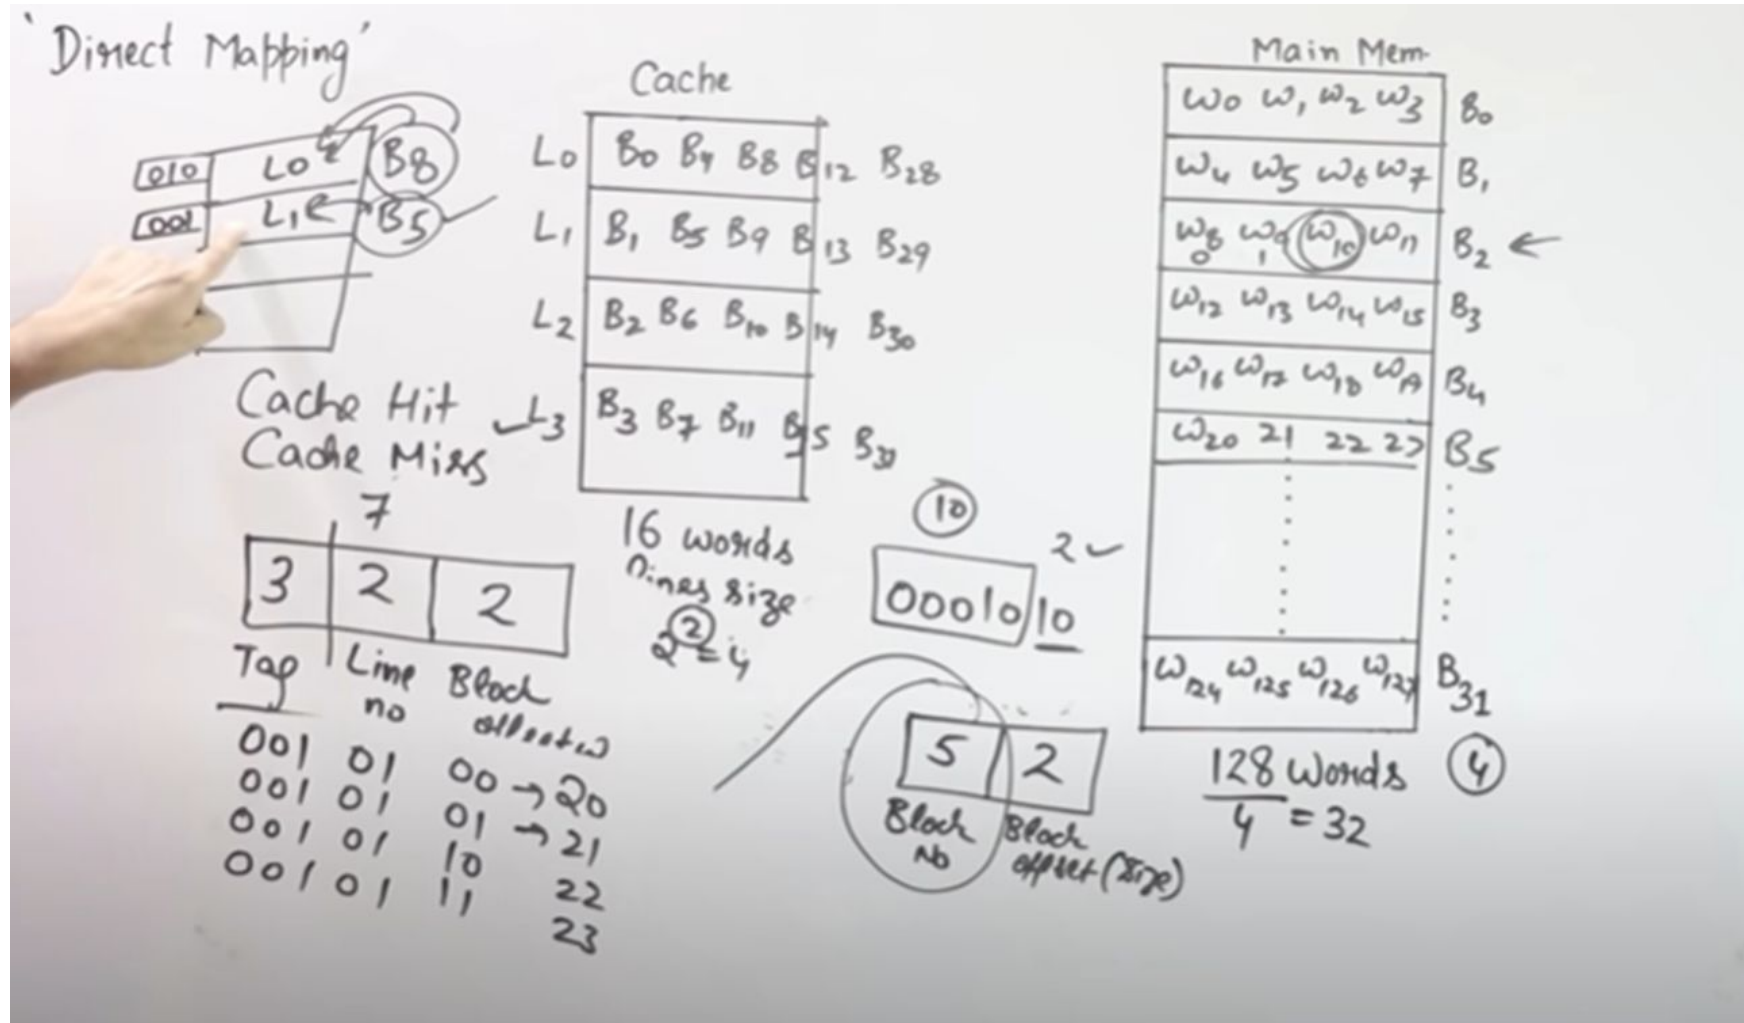 'Direct Mapping'
010 L0 B8
001 L1 B5
Cache Hit
Cache Miss
7
3 2 2
Tag Line no Block
001 01 00 → 20
001 01 01 → 21
001 01 10 22
001 01 11 23
Cache
L0 B0 B4 B8 B12 B28
L1 B1 B5 B9 B13 B29
L2 B2 B6 B10 B14 B30
L3 B3 B7 B11 B15
16 words
lines size
2² = 4
10
0001010
2
5 2
Block No
Block offset (Size)
Main Mem.
W0 W1 W2 W3 B0
W4 W5 W6 W7 B1
W8 W9 W10 W11 B2
0 1
W12 W13 W14 W15 B3
W16 W17 W18 W19 B4
W20 21 22 23 B5
W124 W125 W126 W127 B31
128 Words 4
4 = 32